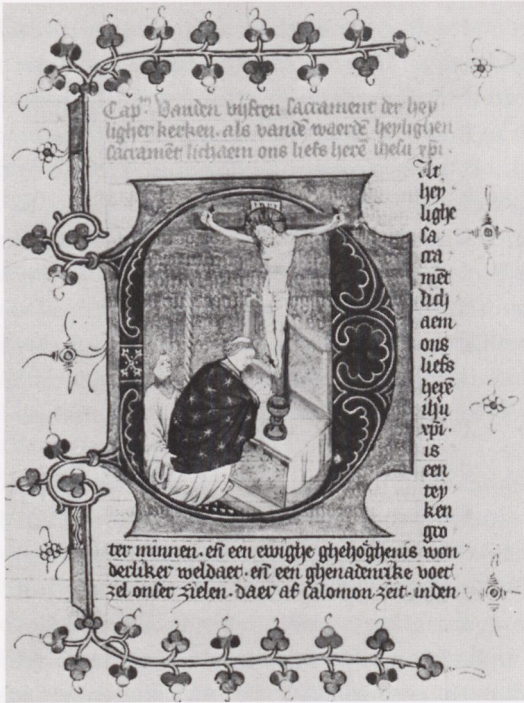 Cap^m. Vanden vijften sacrament der hey
ligher kerken. als vandē waerdē heylighen
sacramēt lichaem ons liefs herē ihesu xpi.
INRI
at
hey
lighe
sa
cra
mēt
lich
aem
ons
liefs
herē
ihu
xpi.
is
een
tey
ken
gro
ter minnen. eñ een ewighe ghehoghenis won
derliker weldaet. eñ een ghenadenrike voet
zel onser zielen. daer af salomon zeit. inden